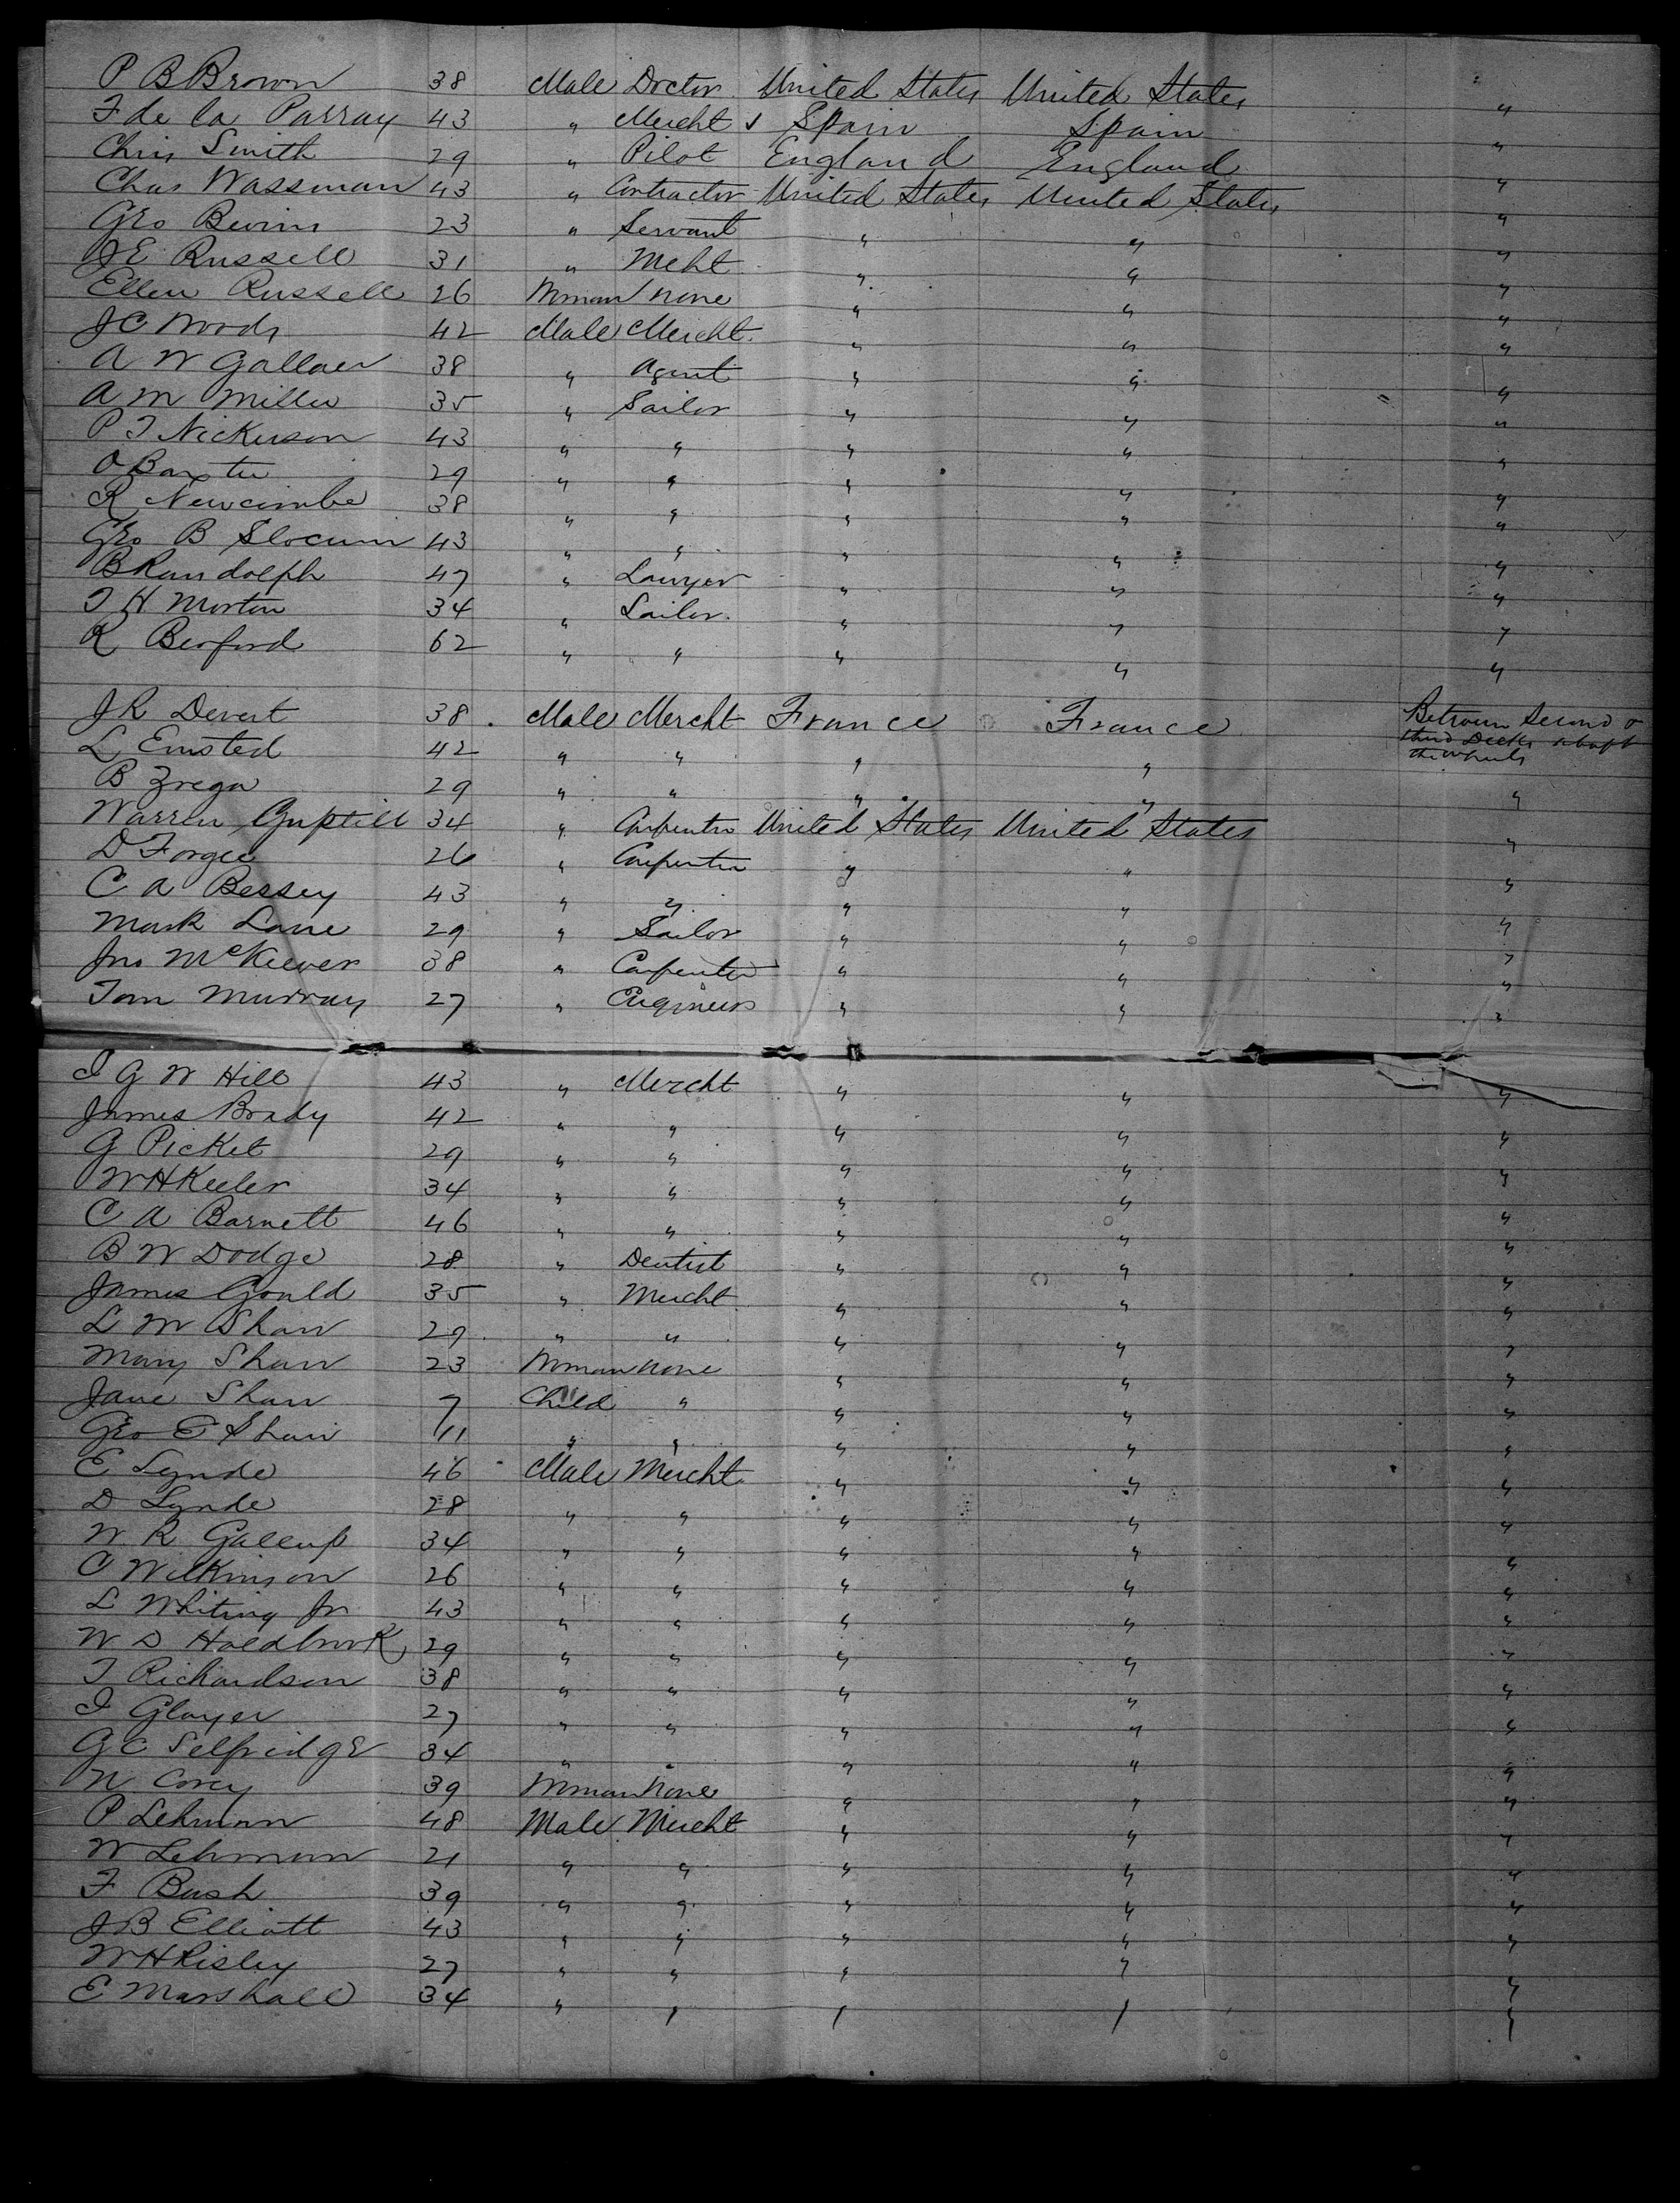 P B Brown 38 Male Doctor United States United States "
F de la Parray 43 " Mercht & Spain Spain "
Chris Smith 29 " Pilot England England "
Chas Wassman 43 " Contractor United States United States "
Geo Bevins 23 " Servant " " "
J E Russell 31 " Mcht " " "
Ellen Russell 26 Woman None " " "
J C Woods 42 Male Mercht " " "
A W Gallaer 38 " Agent " " "
A M Miller 35 " Sailor " " "
P T Nickerson 43 " " " " "
O Baxter 29 " " " " "
R Newcombe 38 " " " " "
Geo B Slocum 43 " " " " "
B Randolph 47 " Lawyer " " "
T H Morton 34 " Sailor " " "
R Berford 62 " " " " "
J R Devert 38 Male Mercht France France Between Second &
third Decks abaft
the wheels
L Emsted 42 " " " "
B Zrega 29 " " " " "
Warren Guptill 34 " Carpenter United States United States "
D Forgee 26 " Carpenter " " "
C A Bessey 43 " " " " "
Mark Lane 29 " Sailor " " "
Jno McKeever 38 " Carpenter " " "
Tom Murray 27 " Engineer " " "
I G W Hill 43 " Mercht " " "
James Brady 42 " " " " "
G Picket 29 " " " " "
W H Keeler 34 " " " " "
C A Barnett 46 " " " " "
B W Dodge 28 " Dentist " " "
James Gould 35 " Mercht " " "
L M Shaw 29 " " " " "
Mary Shaw 23 Woman None " " "
Jane Shaw 7 Child " " " "
Geo E Shaw 11 " " " " "
E Lynde 46 Male Mercht " " "
D Lynde 28 " " " " "
W R Gallup 34 " " " " "
C Wilkinson 26 " " " " "
L Whiting Jr 43 " " " " "
W D Holdbrook 29 " " " " "
T Richardson 38 " " " " "
I Glayer 27 " " " " "
G C Selfridge 34 " " " " "
N Corey 39 Woman None " " "
P Lehman 48 Male Mercht " " "
W Lehman 21 " " " " "
F Bush 39 " " " " "
J B Elliott 43 " " " " "
W H Risley 27 " " " " "
E Marshall 34 " " " " "